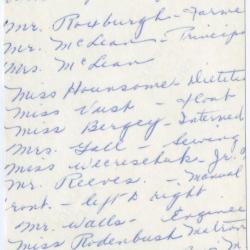 Mr. Roxburgh - Farme
Mr. McLean - Princip
Mrs. McLean
Miss Hounsome - Dietiti
Miss Vust - Float
Miss Bergey - Intermed
Mrs. Gall - Sewing
Miss Weereschuk - Jr. G
Mr. Reeves. - Manual
ront - left to right
Mr. Walls - Enginee
Miss Rodenbush Matron